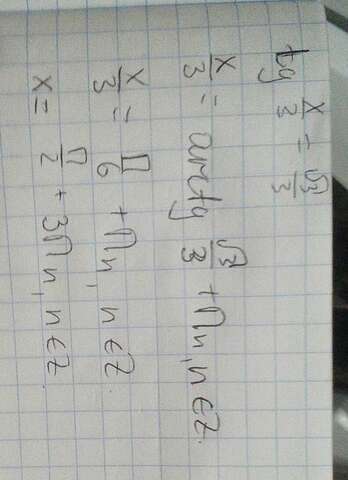 tg x/3 = √3/3
x/3 = arctg √3/3 + πn, n∈Z.
x/3 = π/6 + πn, n∈Z.
x = π/2 + 3πn, n∈Z.